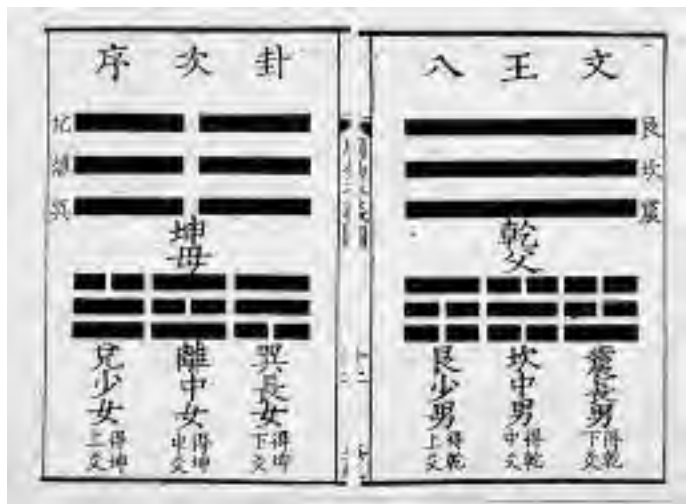 文王八
艮
坎
震
乾父
震長男
得乾
下爻
坎中男
得乾
中爻
艮少男
得乾
上爻
卦次序
坤母
兌
離
巽
巽長女
得坤
下爻
離中女
得坤
中爻
兌少女
得坤
上爻